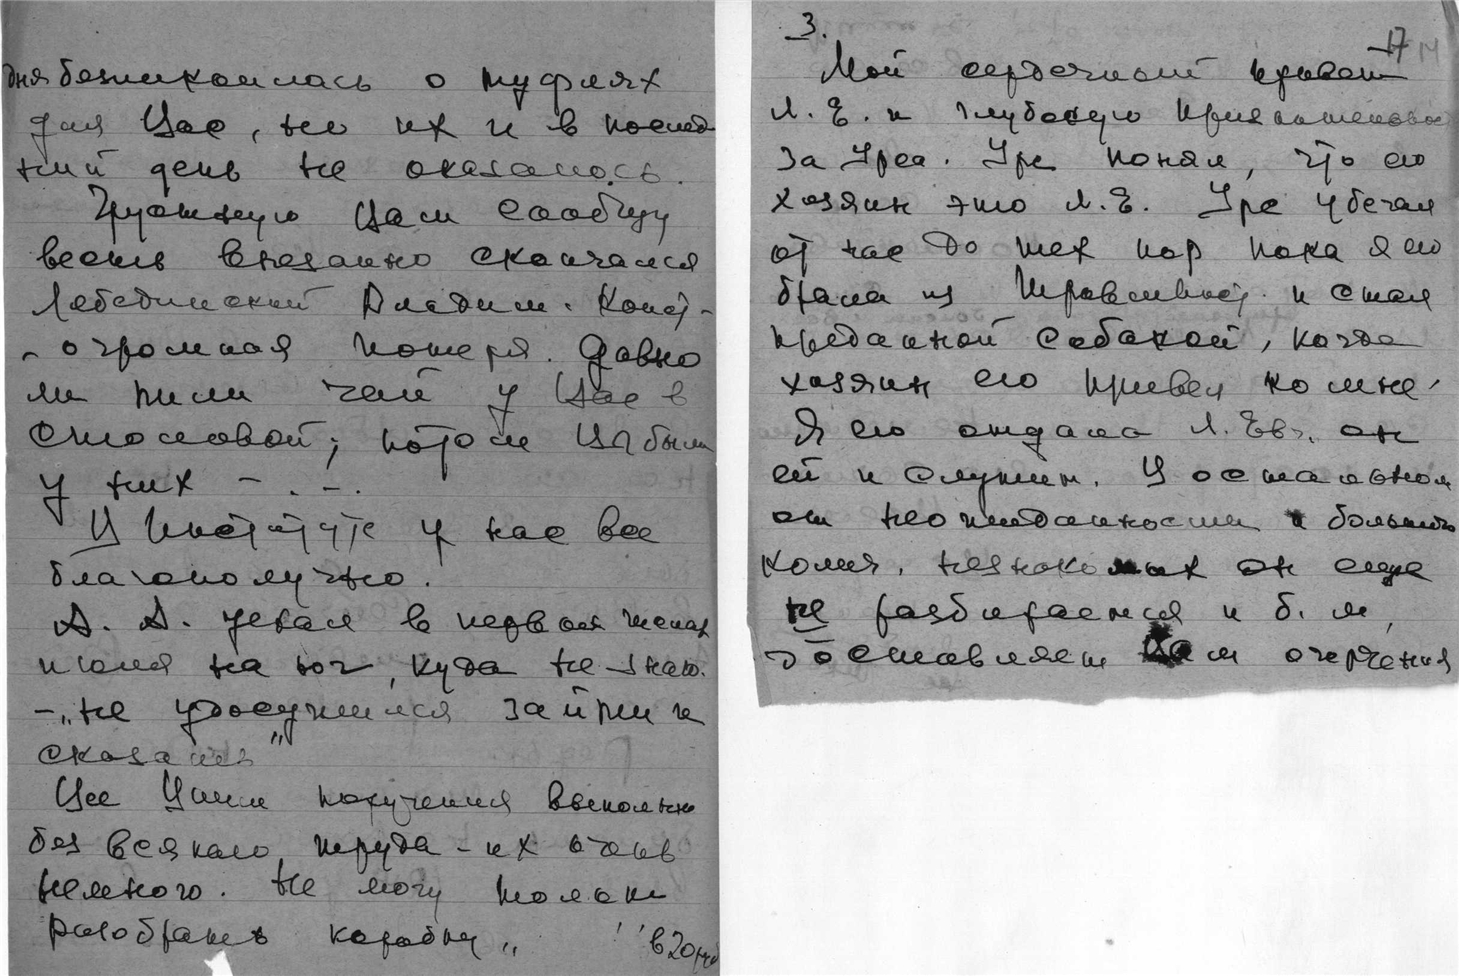 дня безпокоилась о туфлях
для Вас, но их и в послед
ний день не оказалось.
Грустную Вам сообщу
весть внезапно скончался
Лебединский Владим. Конст.
- огромная потеря. Давно
ли пили чай у Вас в
столовой; потом Вы были
у них - . - .
В Институте у нас все
благополучно.
А. А. уехал в первых числах
июля на юг, куда не знаю.
- "не удосужился зайти и
сказать"
Все Ваши поручения выполню
без всякого труда - их очень
немного. Не могу только
разобрать коробку "в 20 руб
3.
17
Мой сердечный привет
Л. Е. и глубокую признательность
за Уреа. Уре понял, что его
хозяин это Л. Е. Уре убегал
от нас до тех пор пока я его
брала из и стал
преданной собакой, когда
хозяин его привел ко мне.
Я его отдала Л. Евг. он
ей и служит. В остальном
от неожиданности и больших
незнакомых он еще
не разбирается и б. м.
доставляет Вам огорчения